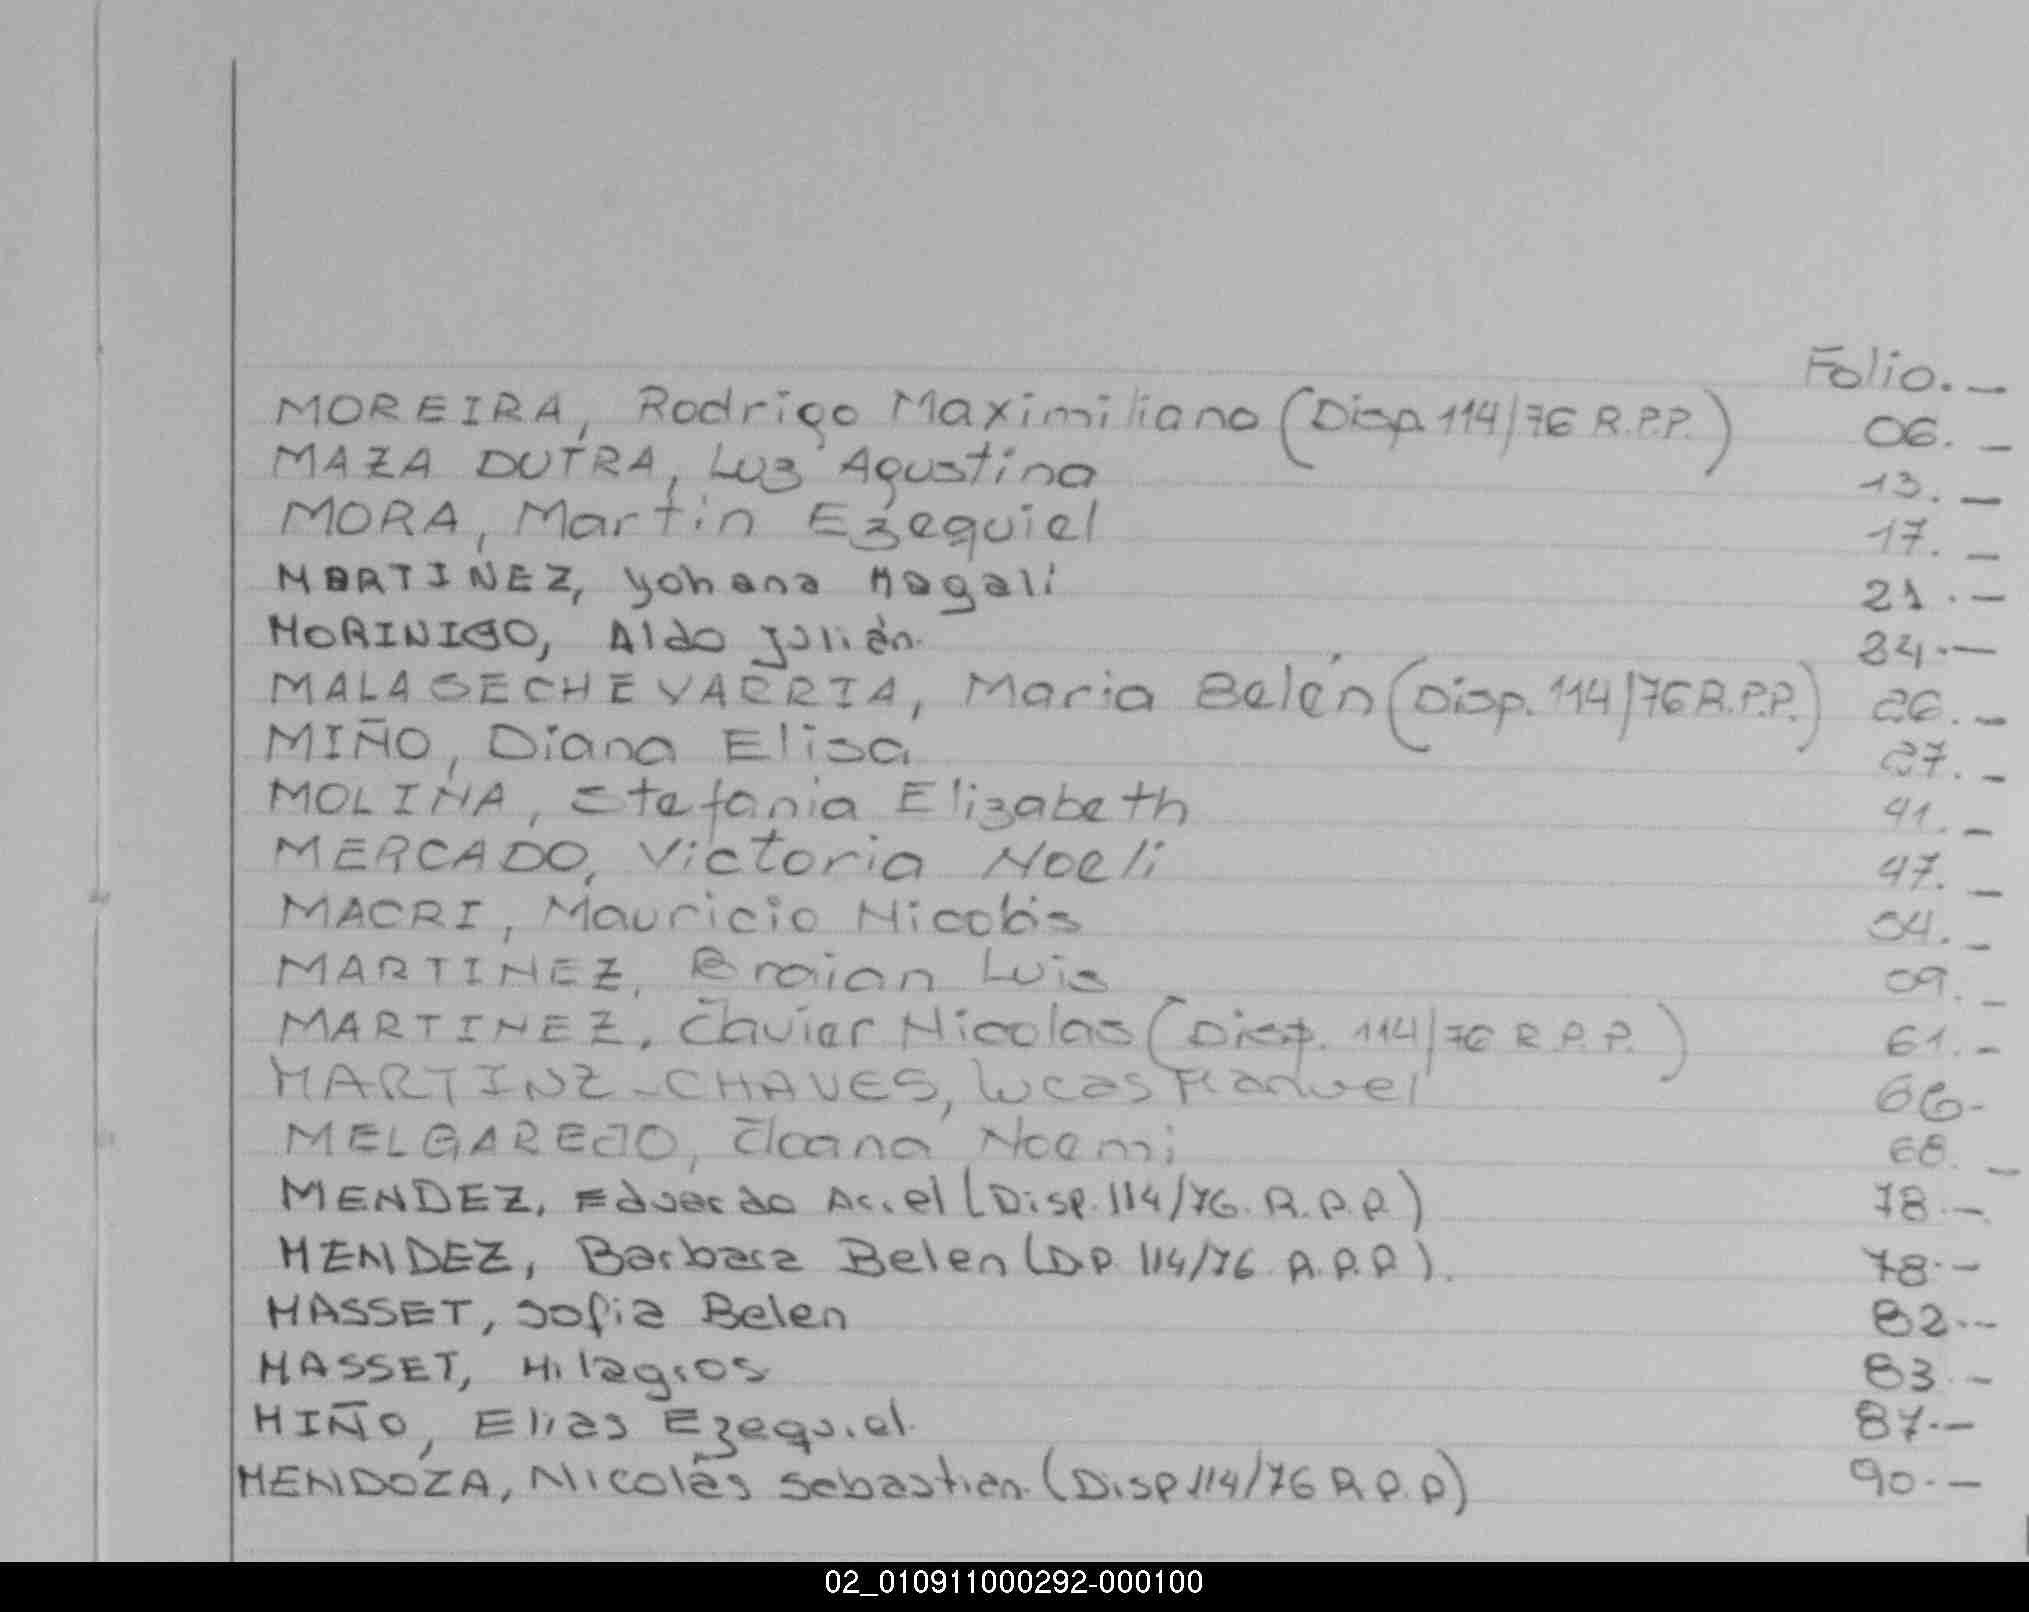 Folio. —
MOREIRA, Rodrigo Maximiliano (Disp. 114/76 R.P.P.) 06. —
MAZA DUTRA, Luz Agustina 13. —
MORA, Martín Ezequiel 17. —
MARTINEZ, Yohana Magali 21. —
MORINIGO, Aldo Julián. 24. —
MALASECHEVARRIA, Maria Belén (Disp. 114/76 R.P.P.) 26. —
MIÑO, Diana Elisa 27. —
MOLINA, Stefania Elizabeth 41. —
MERCADO, Victoria Noeli 47. —
MACRI, Mauricio Nicolás 54. —
MARTINEZ, Braian Luis 09. —
MARTINEZ, Javier Nicolas (Disp. 114/76 R.P.P.) 61. —
MARTINZ-CHAVES, Lucas Manuel 66-
MELGAREJO, Joana Noemi 68. —
MENDEZ, Eduardo Ariel (Disp. 114/76. R.P.P.) 78. —
MENDEZ, Barbara Belen (DP. 114/76 R.P.P.). 78. —
MASSET, Sofia Belen 82. —
MASSET, Milagros 83. —
MIÑO, Elias Ezequiel. 87. —
MENDOZA, Nicolás Sebastian. (Disp 114/76 R.P.P) 90. —
02_010911000292-000100